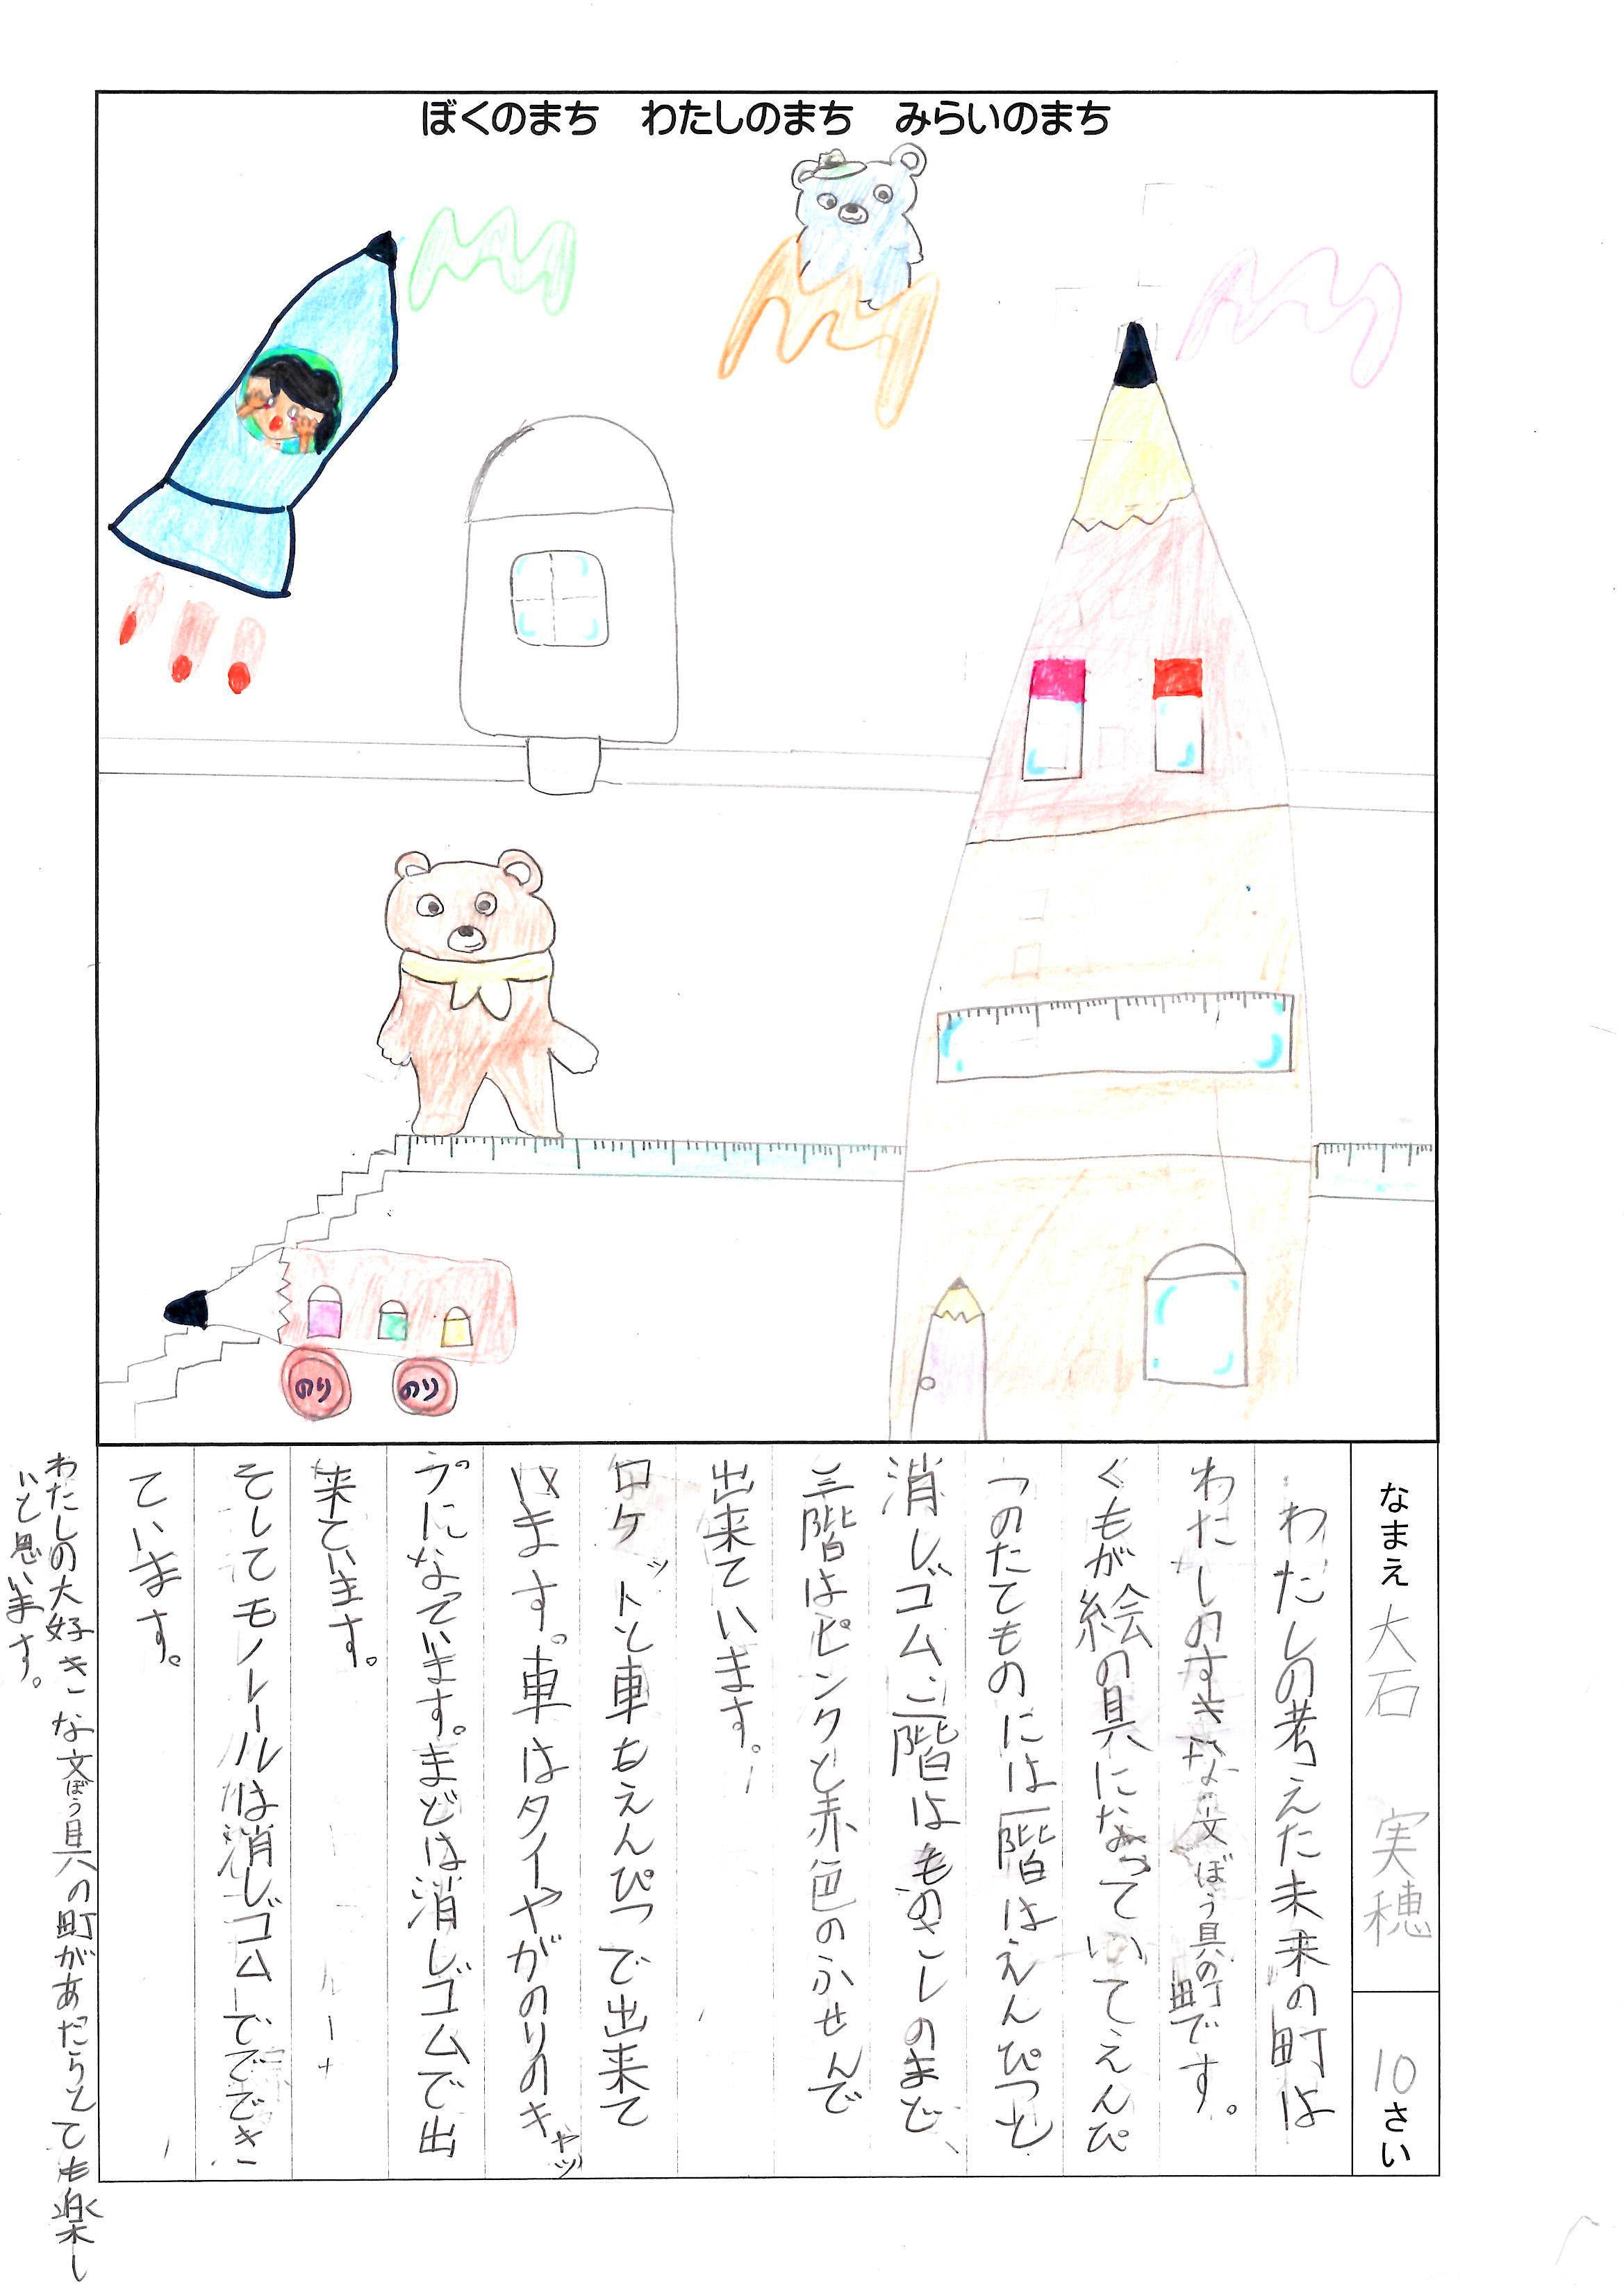 ぼくのまち　わたしのまち　みらいのまち
のり
のり
なまえ 大石 実穂
10さい
わたしの考えた未来の町は
わたしのすきな文ぼう具の町です。
くもが絵の具になっていてえんぴ
つのたてものには一階はえんぴつと
消しゴム、二階はものさしのまど、
三階はピンクと赤色のふせんで
出来ています。
ロケットと車もえんぴつで出来て
います。車はタイヤがのりのキャッ
プになっています。まどは消しゴムで出
来ています。
そしてモノレールは消しゴムでできて
ています。
わたしの大好きな文ぼう具の町があったらとても楽し
いと思います。